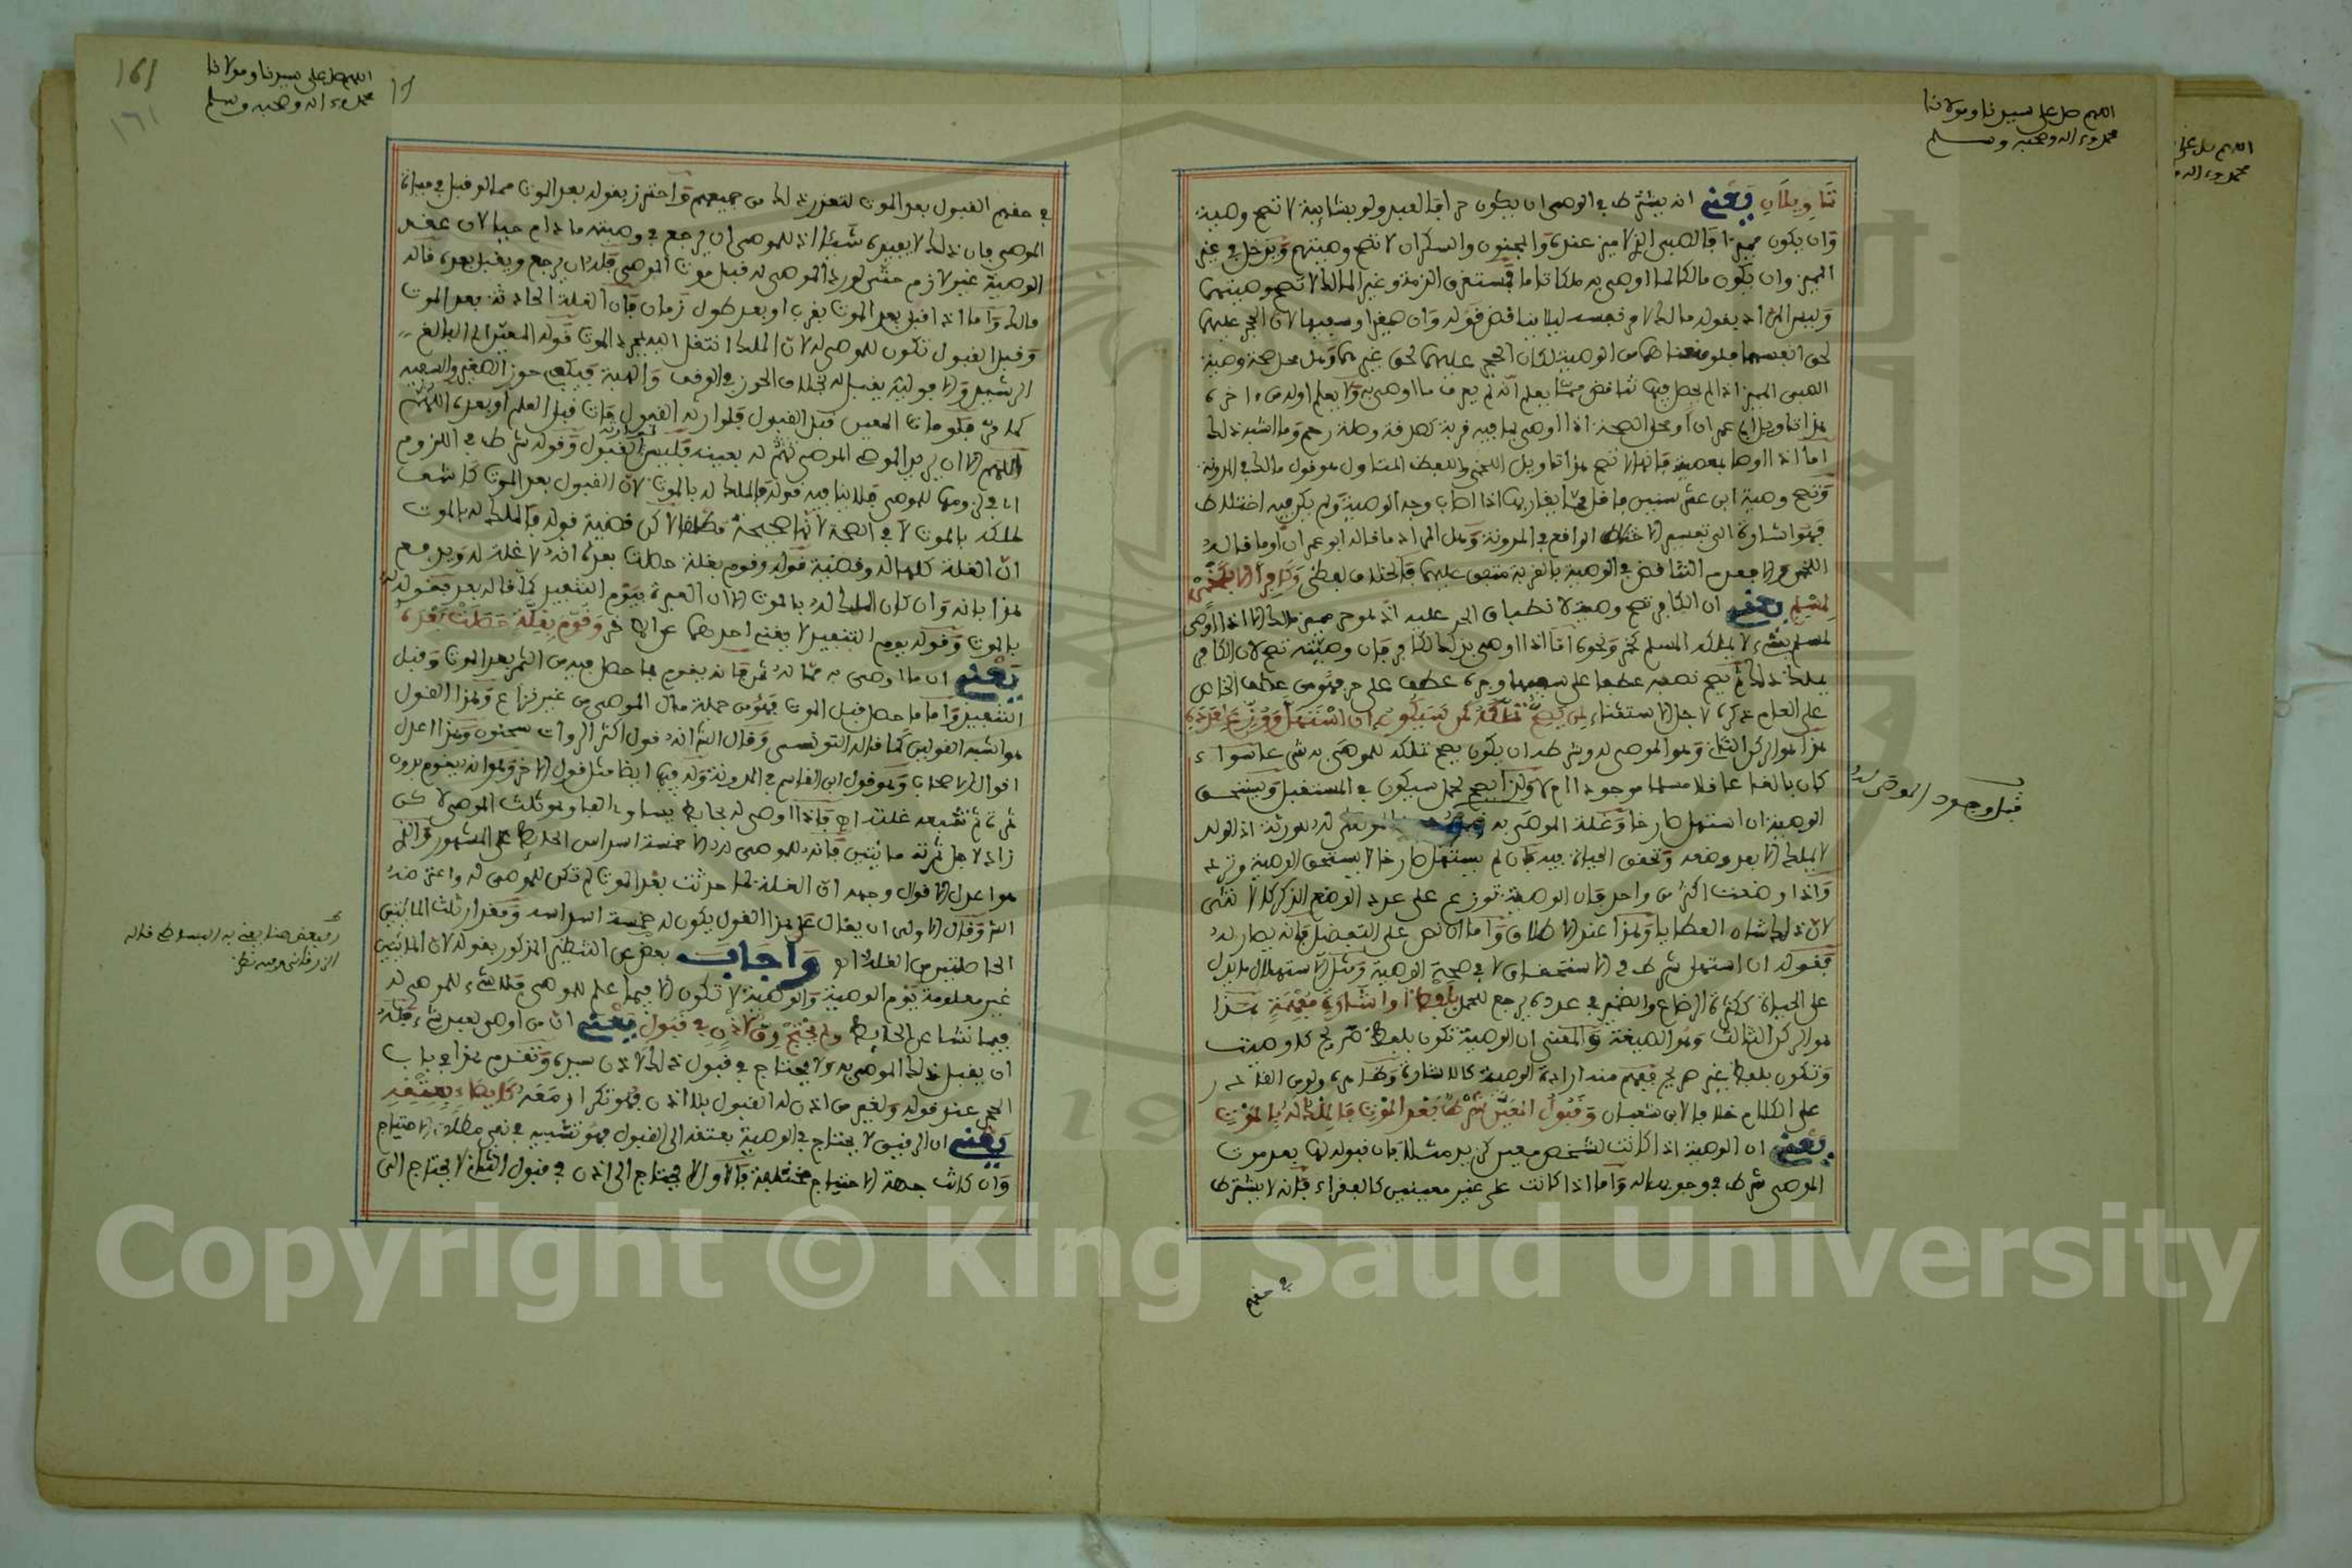 اللهم صل على سيدنا ومولانا
محمد وءاله وصحبه وسلم
تأويلان يعني انه يشترط في الموصي ان يكون حرا فالعبد ولو بشايبة لا تصح وصية
وان يكون مميزا فالصبي الذي لا ميز عنده والمجنون والسكران لا تصح وصيتهم ويدخل في غير
المميز وان يكون مالكا لما اوصى به ملكا تاما فمستغرق الذمة وغير المالك لا تصح وصيتهما
وليس المراد بقوله مالك لامر نفسه ليلا يناقض قوله وان صغيرا وسفيها لان الحجر عليهما
لحق انفسهما فلو منعناهما من الوصية لكان الحجر عليهما لحق غيرهما وهل محل صحة وصية
الصبي المميز اذا لم يحصل فيها تناقض مما يعلم انه لم يعرف ما اوصى به ولا يعلم اوله من ءاخره
هذا تاويل ابي عمران او محل الصحة اذا اوصى بما فيه قربة كصدقة وصلة رحم وما اشبه ذلك
اما اذا اوصا بمعصية فانها لا تصح هذا تاويل اللخمي واللفظ المتاول هو قول مالك في المدونة
وتصح وصية ابن عشر سنين فاقل مما يقاربها اذا اصاب وجه الوصية ولم يكن فيه اختلاط
فهو اشارة الى تفسير الاختلاط الواقع في المدونة وهل المراد ما قاله ابو عمران او ما قاله
اللخمي والا فعدم التناقض في الوصية بالقربة متفق عليها فالخلاف لفظي وكافرا الا بكخمر
لمسلم يعني ان الكافر تصح وصيته لانطباق الحد عليه اذ هو حر مميز مالك الا اذا اوصى
لمسلم بشيء لا يملكه المسلم كخمر ونحوه اما اذا اوصى بذلك لكافر فان وصيته تصح لان الكافر
يملك ذلك ثم يصح نصبه عطفا على سفيها وجره عطف على حر فهو من عطف الخاص
على العام ذكره لاجل الاستثناء لمن يصح تملكه كمن سيكون ان استهل ووزع لعدده
هذا هو الركن الثاني وهو الموصى له وشرطه ان يكون يصح تملكه للموصى به شرعا سواء
كان بالغا عاقلا مسلما موجودا ام لا ولذا يصح لحمل سيكون في المستقبل ويستحق
الوصية ان استهل صارخا وغلة الموصى به لورثة اذ الولد
لا يملك الا بعد وضعه وتحقق الحياة فيه فان لم يستهل صارخا لا يستحق الوصية وترد
واذا وضعت اكثر من واحد فان الوصية توزع على عدد الوضع الذكر كالانثى
لان ذلك شان العطايا وهذا عند الاطلاق واما ان نص على التفضيل فانه يصار له
فقوله ان استهل شرط في الاستحقاق لا في صحة الوصية ومثل الاستهلال ما يدل
على الحياة ككثرة الرضاع والضمير في عدده يرجع للحمل بلفظ او اشارة مفهمة هذا
هو الركن الثالث وهو الصيغة والمعنى ان الوصية تكون بلفظ صريح كاوصيت
وتكون بلفظ غير صريح يفهم منه ارادة الوصية كالاشارة وظاهره ولو من القادر
على الكلام خلافا لابن شعبان وقبول المعين شرط بعد الموت فالملك له بالموت
يعني ان الوصية اذا كانت لشخص معين كزيد مثلا فان قبوله لها بعد موت
الموصي شرط في وجوبها له واما اذا كانت على غير معينين كالفقراء فانه لا يشترط
في حقهم
قبل وجود الموصى له
161
١٦١
اللهم صل على سيدنا ومولانا
محمد وءاله وصحبه وسلم
في حقهم القبول بعد الموت لتعذر ذلك من جميعهم واحترز بقوله بعد الموت مما لو قبل في حياة
الموصي فان ذلك لا يفيده شيئا اذ للموصي ان يرجع في وصيته ما دام حيا لان عقد
الوصية غير لازم حتى لو رد الموصى له قبل موت الموصي فله ان يرجع ويقبل بعده قاله
مالك واما اذا قبل بعد الموت بقرب او بعد طول زمان فان الغلة الحادثة بعد الموت
وقبل القبول تكون للموصى له لان الملك انتقل اليه بمجرد الموت قوله المعين اي البالغ
الرشيد والا فوليه يقبل له بخلاف الحوز في الوقف والهبة فيكفي حوز الصغير والسفيه
كما مر فلو مات المعين قبل القبول فلوارثه القبول مات قبل العلم او بعده اللهم
الا ان يريد الموصي الموصى له بعينه فليس لوارثه القبول وقوله شرط في اللزوم
اي في لزومها للموصي فلا ينافيه قوله فالملك له بالموت لان القبول بعد الموت كاشف
لملكه بالموت لا في الصحة لانها صحيحة مطلقا لاكن قضية قوله فالملك له بالموت
ان الغلة كلها له وقضية قوله وقوم بغلة حصلت بعده انه لا غلة له ويدفع
هذا بانه وان كان الملك له بالموت الا ان العبرة بيوم التنفيذ كما قاله بعد فقوله له
بالموت وقوله يوم التنفيذ لا يغني احدهما عن الاخر وقوم بغلة حصلت بعده
يعني ان ما اوصى به مما له ثمر فانه يقوم بما حصل فيه من الثمر بعد الموت وقبل
التنفيذ واما ما حصل قبل الموت فهو من جملة مال الموصي من غير نزاع وهذا القول
هو اشبه القولين كما قاله التونسي وقال انه قول اكثر الروات سحنون وهذا اعدل
اقوال اصحابنا وهو قول ابن القاسم في المدونة وله فيها ايضا مثل قول الاخر وهو انه يقوم بدون
ثمرة ثم تتبعه غلته اهـ فاذا اوصى له بحايط يساوي الفا وهو ثلث الموصي لاكن
زاد لاجل ثمرته مائتين فانه للموصى له الا خمسة اسداس الحايط على المشهور والذي
هو اعدل الاقوال وجهه ان الغلة لما حدثت بعد الموت لم تكن للموصى له واعترضه
وقال الاولى ان يقال على هذا القول يكون له خمسة اسداسه ومقدار ثلث المائتين
الحاصلتين من الغلة اهـ واجاب بعض عن التنظير المذكور بقوله لان المائتين
غير معلومة يوم الوصية والوصية لا تكون الا فيما علم للموصي فلا شيء للموصى له
فيما نشا عن الحايط ولم يحتج رق لاذن في قبول يعني ان من اوصي لعبد بشيء فله
ان يقبل ذلك الموصى به ولا يحتاج في قبول ذلك لاذن سيده وتقدم هذا في باب
الحجر عند قوله ولغير من اذن له القبول بلا اذن فهو تكرار معه كايصاء بعتقه
يعني ان الرقيق لا يحتاج في الوصية بعتقه الى القبول فهو تشبيه في نفي مطلق الاحتياج
وان كانت جهة الاحتياج مختلفة فالاول لا يحتاج الى اذن في قبول الثاني لا يحتاج الى
الزرقاني